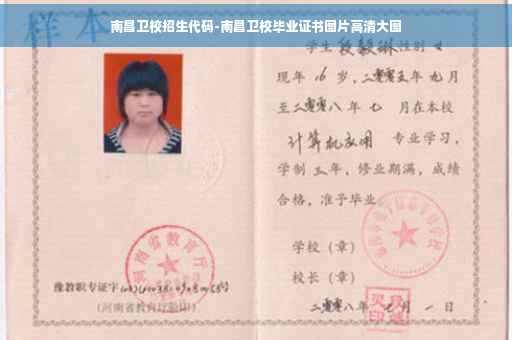 南昌卫校招生代码-南昌卫校毕业证书图片高清大图
样本
学生段毅琳性别女
现年16岁，二零零五年九月
至二零零八年七月在本校
计算机应用 专业学习，
学制三年，修业期满，成绩
合格，准予毕业
学校（章）
校长（章）
二零零八年七月一日
河南省教育厅
豫教职专证字
（河南省教育厅验印）